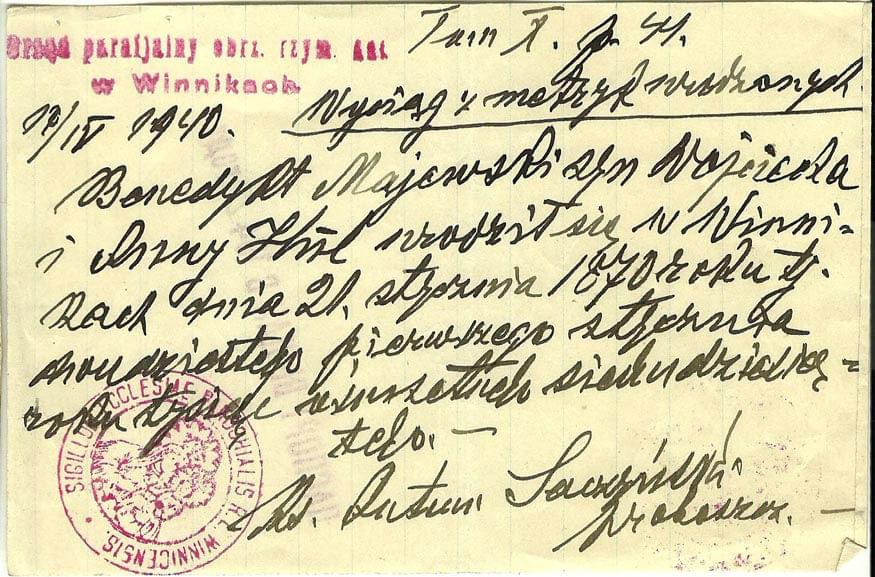 Tom X. p. 41.
Urząd parafjalny obrz. rzym. kat.
w Winnikach
Wyciąg z metryk urodzonych.
17/IV 1940.
Benedykt Majewski syn Wojciecha
i Anny Hül urodził się w Winni=
kach dnia 21. stycznia 1870 roku tj.
dwudziestego pierwszego stycznia
roku tysiąc ośmsetnego siedmdziesią=
tego. —
Ks. Antoni
proboszcz. —
SIGILLUM ECCLESIAE PAROCHIALIS R. L. WINNICENSIS